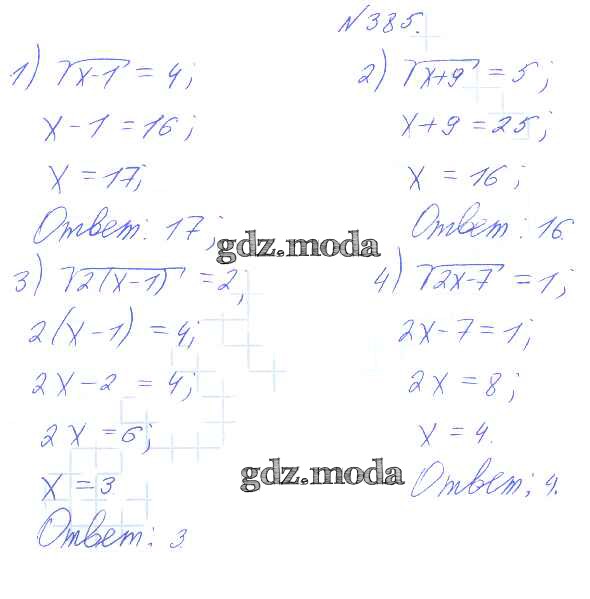 №385.
1) √x-1 = 4;
x-1=16;
x=17;
Ответ: 17;
2) √x+9 = 5;
x+9=25;
x=16;
Ответ: 16.
gdz.moda
3) √2(x-1) = 2;
2(x-1)=4;
2x-2=4;
2x=6;
x=3.
Ответ: 3.
4) √2x-7 = 1;
2x-7=1;
2x=8;
x=4.
Ответ: 4.
gdz.moda